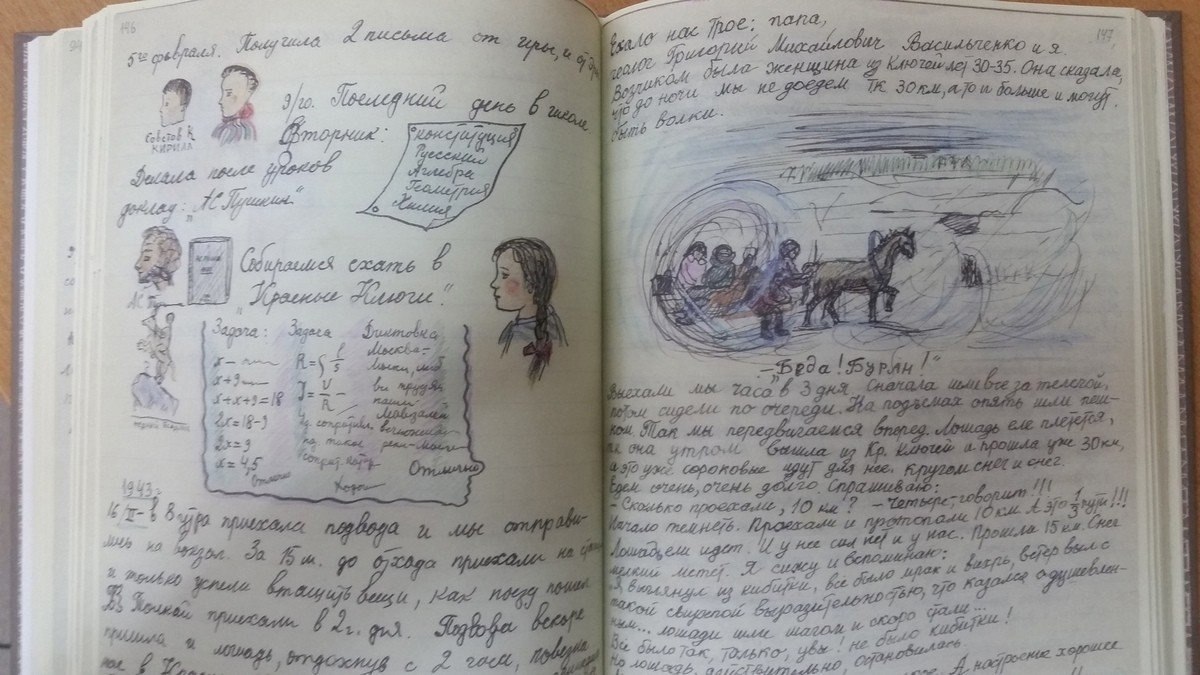 146
5го февраля. Получила 2 письма от Иры, и от
Советов К
КИРИЛА
9/го. Последний день в школе.
Вторник:
Конституция
Русский
Алгебра
Геометрия
Химия
Делала после уроков
доклад: „АС Пушкин"
АС
Собираемся ехать в
„Красные Ключи".
Задача:
x —
x + 9 —
x + x + 9 = 18
2x = 18 - 9
2x = 9
x = 4,5
Отлично
Задача
R = ρ l/s
J = V/R
Хорош
Диктовка
Москва-
Отлично
1943 г.
16/II - в 8 утра приехала подвода и мы отправи-
лись на вокзал. За 15 м. до отхода приехали на
и только успели втащить вещи, как поезд пошел
В Толкай приехали в 2 г. дня. Подвода вскоре
пришла и лошадь, отдохнув с 2 часа, повезла
нас в
147
Ехало нас трое: папа,
геолог Григорий Михайлович Васильченко и я.
Возчиком была женщина из Ключей лет 30-35. Она сказала,
что до ночи мы не доедем тк 30 км, а то и больше и могут
быть волки.
— „Беда! Буран!"
Выехали мы часа в 3 дня. Сначала шли все за телегой,
потом сидели по очереди. На подъемах опять шли пеш-
ком. Так мы передвигаемся вперед. Лошадь еле плетется,
тк она утром вышла из Кр. Ключей и прошла уже 30 км,
а это уже сороковые идут для нее. Кругом снег и снег.
Едем очень, очень долго. Спрашиваю:
- Сколько проехали, 10 км? - Четыре, - говорит!!!
Начало темнеть. Проехали и протопали 10 км. А это 1/3 пути!!!
Лошадь еле идет. И у нее сил нет и у нас. Прошли 15 км. Снег
мелкий метет. Я сижу и вспоминаю:
„Я выглянул из кибитки, все было мрак и вихрь, ветер выл с
такой свирепой выразительностью, что казался одушевлен-
ным... лошади шли шагом и скоро стали...
Все было так, только, увы! не было кибитки!
Но лошадь, действительно, остановилась.
А настроение хорошее